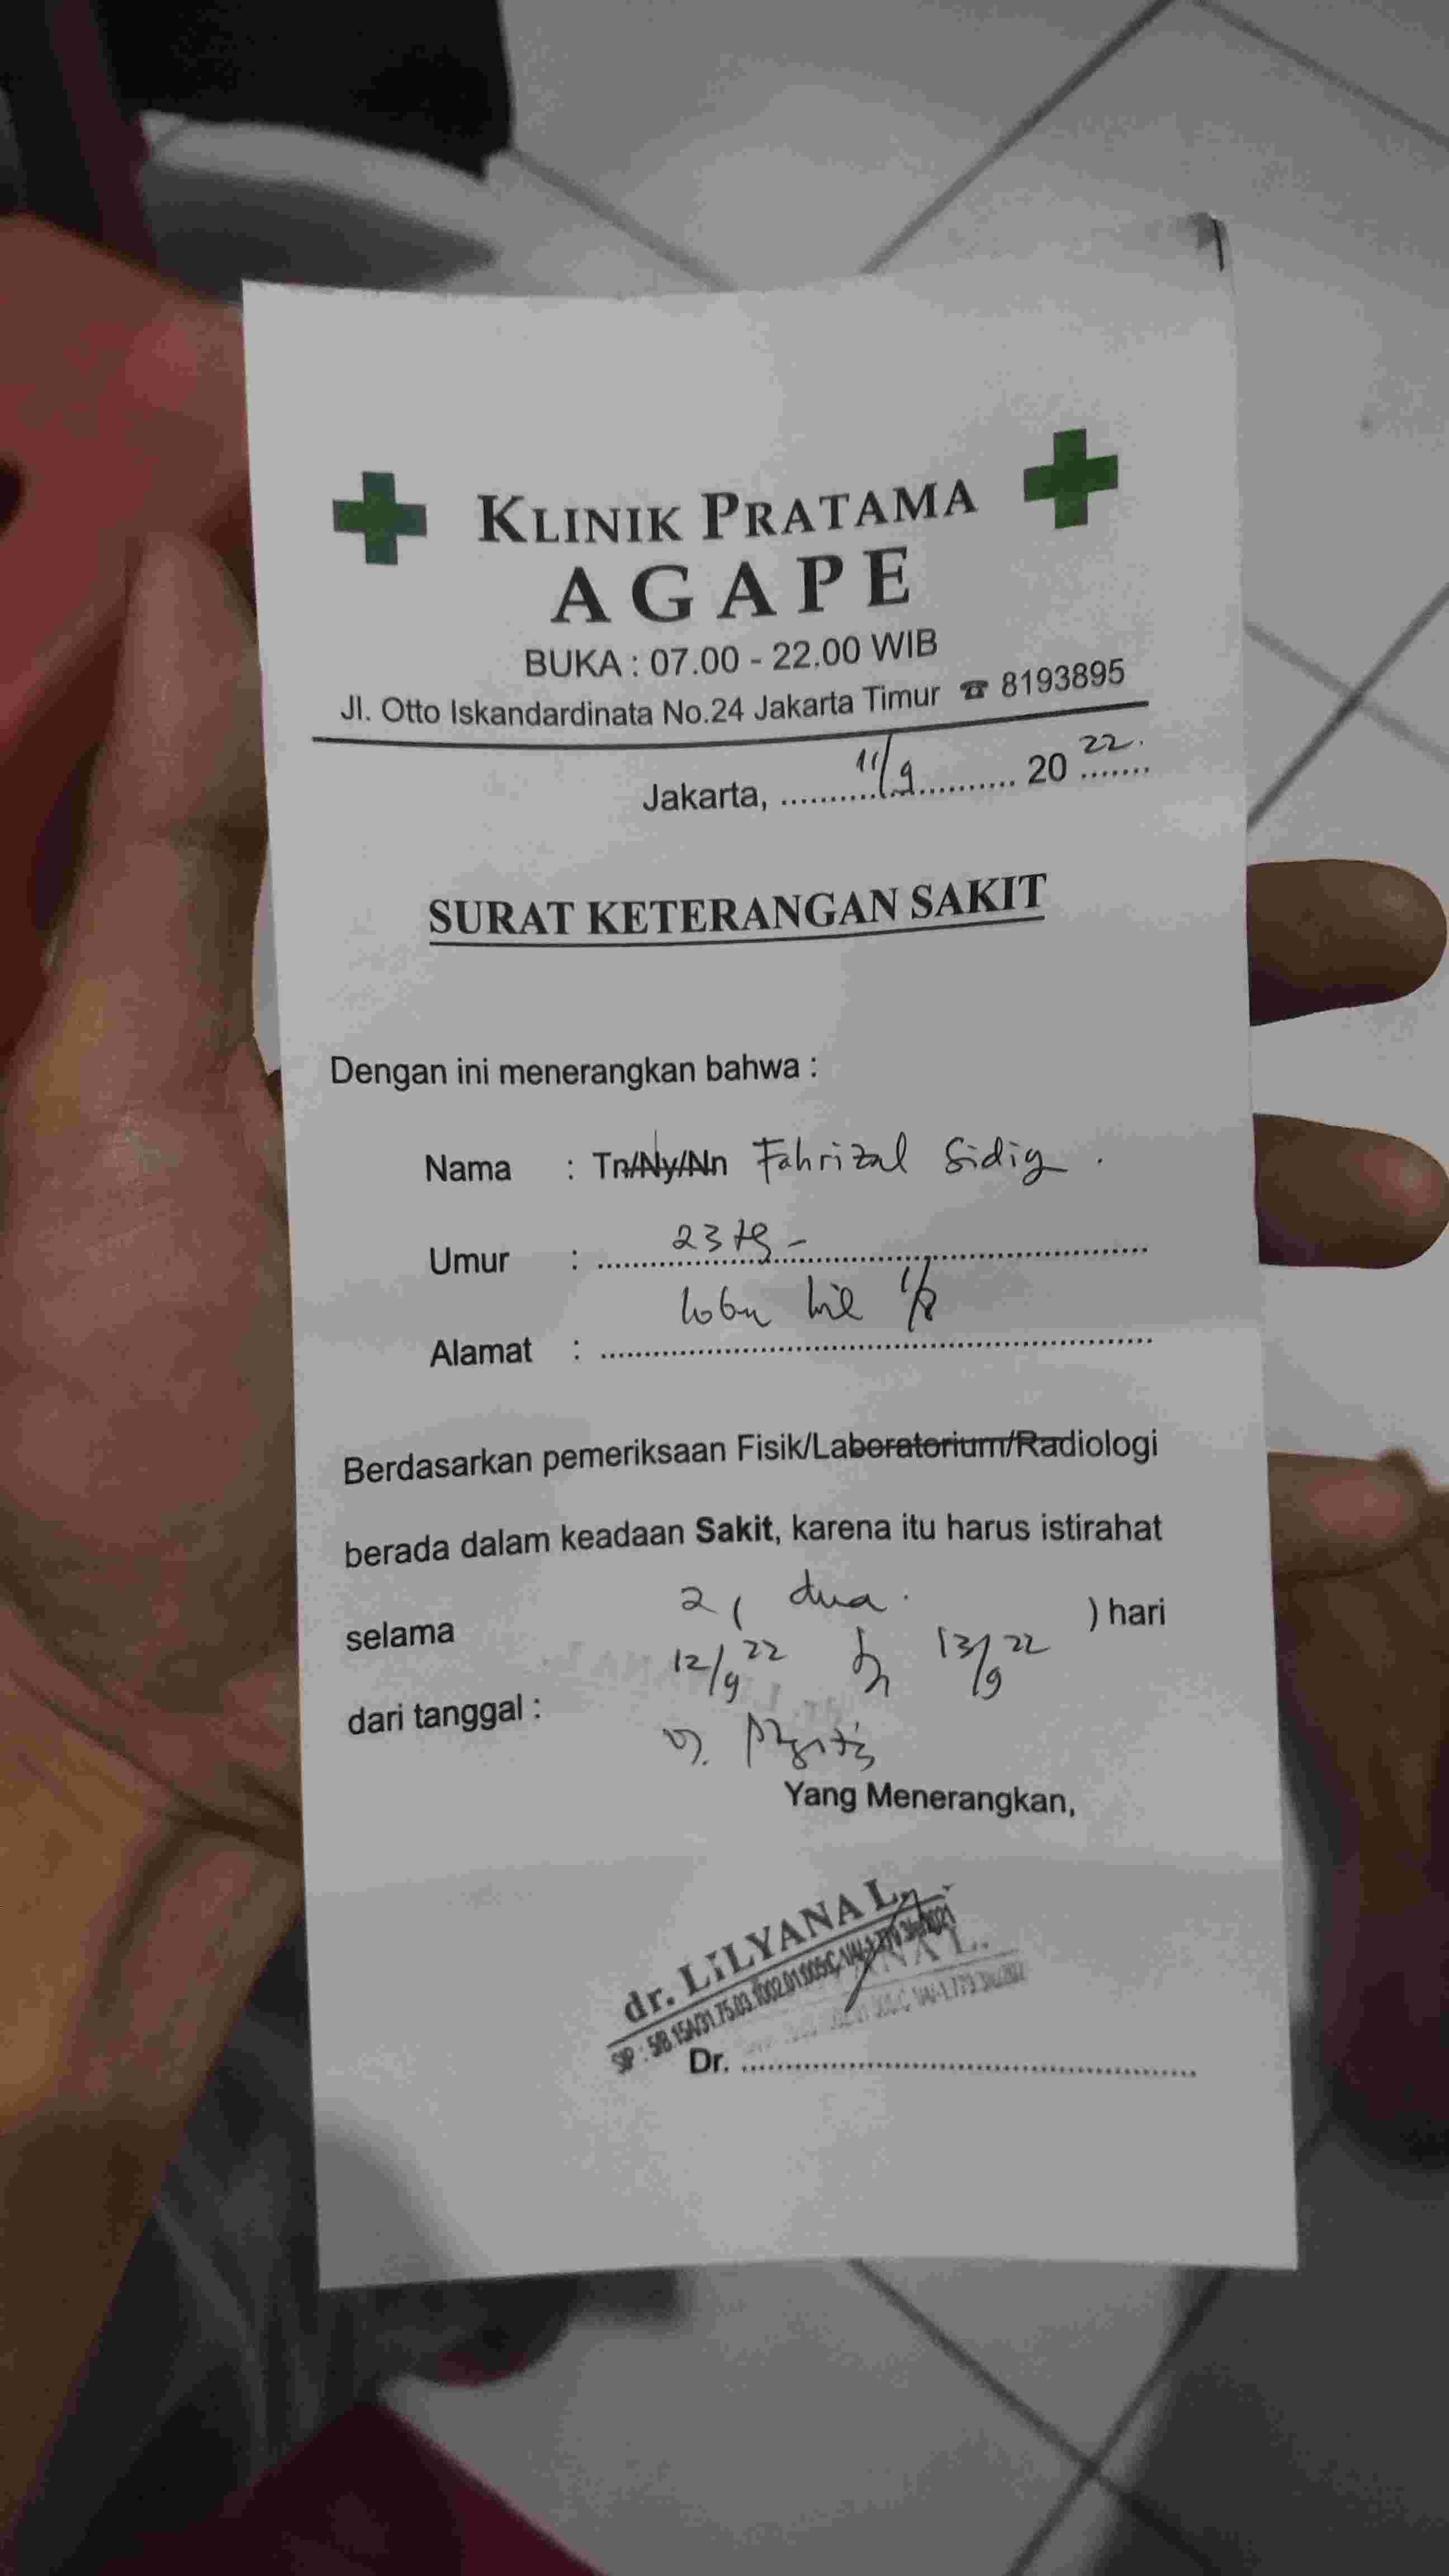 KLINIK PRATAMA
AGAPE
BUKA : 07.00 - 22.00 WIB
Jl. Otto Iskandardinata No.24 Jakarta Timur ☎ 8193895
Jakarta, 11/9 20 22.
SURAT KETERANGAN SAKIT
Dengan ini menerangkan bahwa :
Nama : Tn/Ny/Nn Fahrizal Sidig.
Umur : 23 th -
Alamat :
Berdasarkan pemeriksaan Fisik/Laboratorium/Radiologi
berada dalam keadaan Sakit, karena itu harus istirahat
selama 2 ( dua. ) hari
dari tanggal : 12/9 22 13/9 22
Yang Menerangkan,
dr. LILYANA L.
Dr.